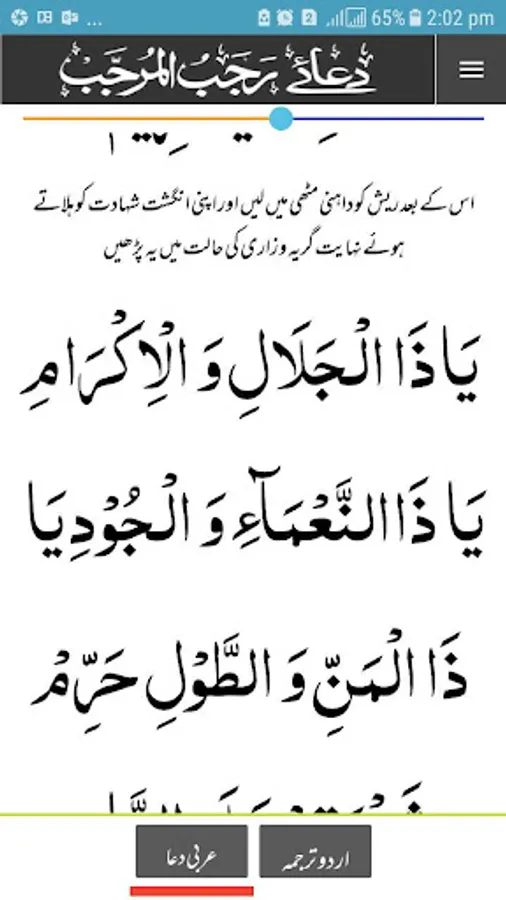 65% 2:02 pm
دعائے رَجَبُ المُرَجَّبْ
اس کے بعد ریش کو داہنی مٹھی میں لیں اور اپنی انگشت شہادت کو ہلاتے
ہوئے نہایت گریہ وزاری کی حالت میں یہ پڑھیں
يَا ذَا الْجَلَالِ وَ الْاِكْرَامِ
يَا ذَا النَّعْمَآءِ وَ الْجُوْدِ يَا
ذَا الْمَنِّ وَ الطَّوْلِ حَرِّمْ
عربی دعا
اردو ترجمہ